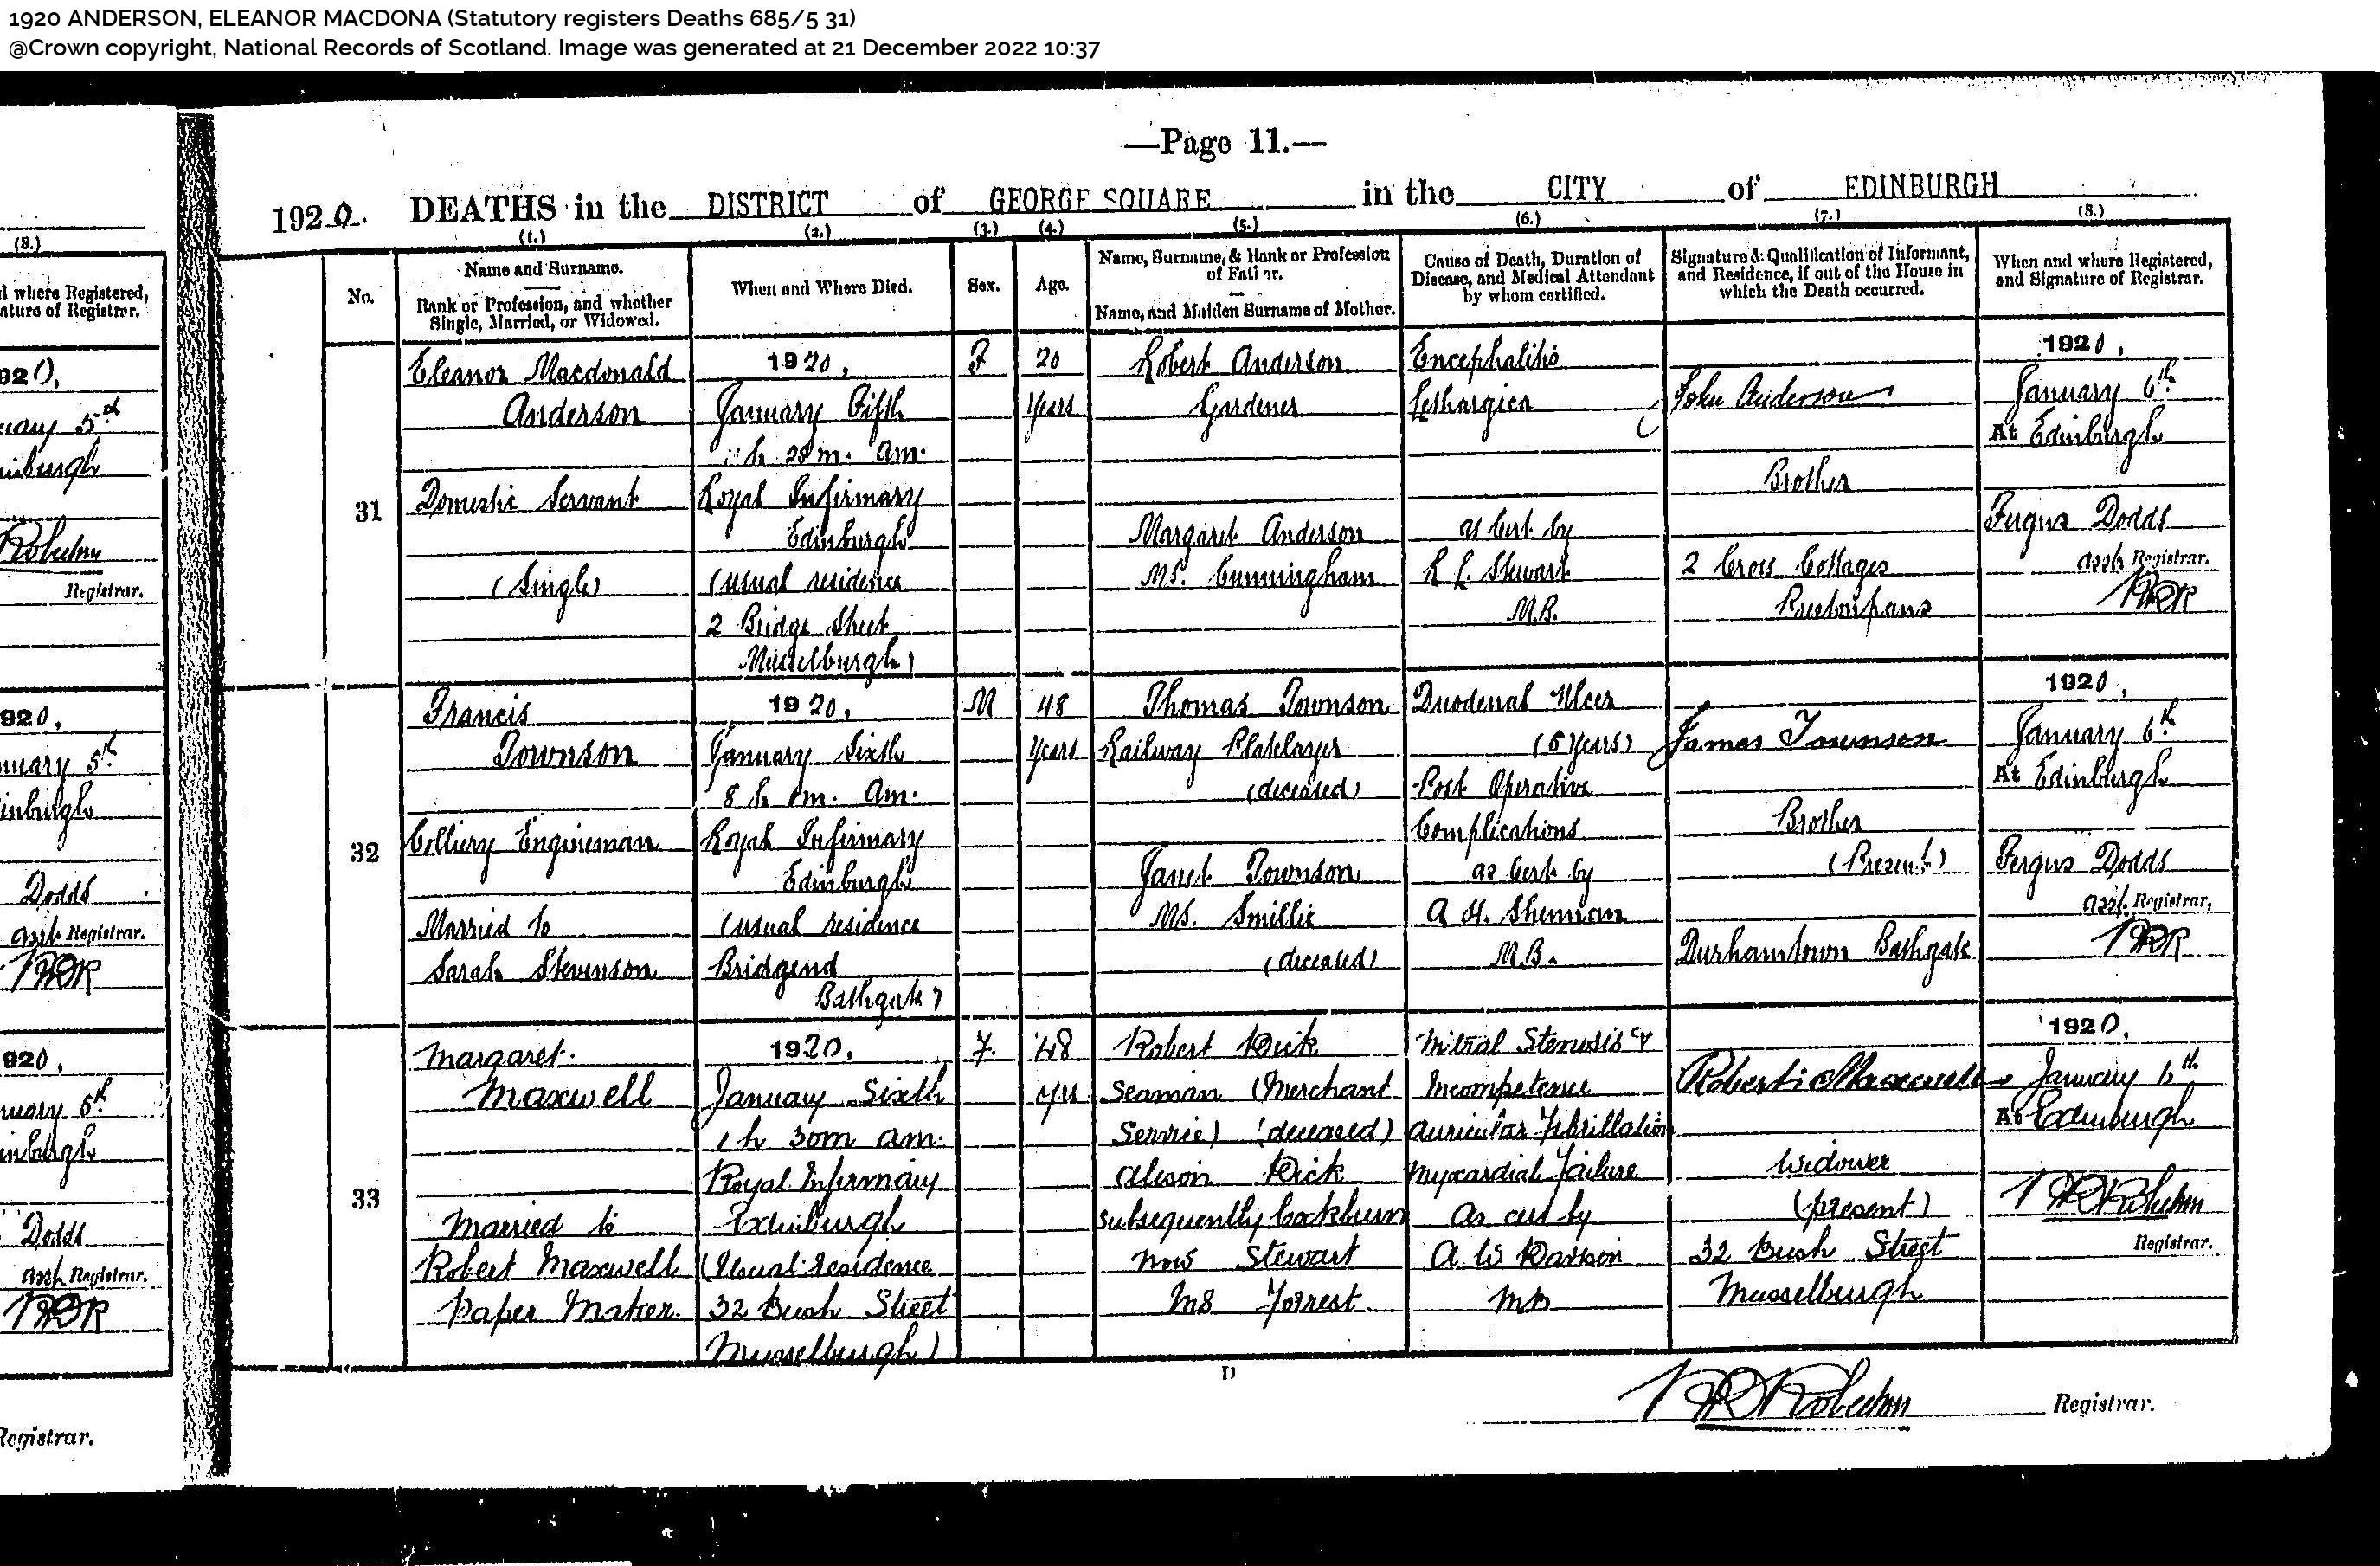 1920 ANDERSON, ELEANOR MACDONA (Statutory registers Deaths 685/5 31)
@Crown copyright, National Records of Scotland. Image was generated at 21 December 2022 10:37
—Page 11.—
1920. DEATHS in the DISTRICT of GEORGE SQUARE in the CITY of EDINBURGH
(1.) (2.) (3.) (4.) (5.) (6.) (7.) (8.)
No.
Name and Surname.
Rank or Profession, and whether
Single, Married, or Widowed.
When and Where Died.
Sex.
Age.
Name, Surname, & Rank or Profession
of Father.
Name, and Maiden Surname of Mother.
Cause of Death, Duration of
Disease, and Medical Attendant
by whom certified.
Signature & Qualification of Informant,
and Residence, if out of the House in
which the Death occurred.
When and where Registered,
and Signature of Registrar.
31
Eleanor Macdonald
Anderson
Domestic Servant
(Single)
1920.
January Fifth
h m. am.
Royal Infirmary
Edinburgh
(usual residence
2 Bridge Street
Musselburgh)
F
20
Years
Robert Anderson
Gardener
Margaret Anderson
MS. Cunningham
Encephalitis
Lethargica
as Cert by
Stewart
M.B.
John Anderson
Brother
2 Cross Cottages
Prestonpans
1920.
January 6th
At Edinburgh
Fergus Dodds
asst. Registrar.
32
Francis
Townson
Colliery Engineman
Married to
Sarah Stevenson
1920.
January Sixth
8 h m. am.
Royal Infirmary
Edinburgh
(usual residence
Bridgend
Bathgate)
M
48
Years
Thomas Townson
Railway Platelayer
(deceased)
Janet Townson
MS. Smillie
(deceased)
Duodenal Ulcer
(5 Years)
Post Operative
Complications
as Cert by
M.B.
James Townson
Brother
(Present)
Durhamtown Bathgate
1920.
January 6th
At Edinburgh
Fergus Dodds
asst. Registrar.
33
Margaret
Maxwell
Married to
Robert Maxwell
Paper Maker.
1920.
January Sixth
1 h 30m am.
Royal Infirmary
Edinburgh
(Usual Residence
32 Bush Street
Musselburgh)
F.
48
yrs
Robert Dick
Seaman (Merchant
Service) (deceased)
Alison Dick
subsequently Cockburn
now Stewart
MS Forrest
Mitral Stenosis &
Incompetence
Auricular Fibrillation
Myocardial Failure
As cert by
A W
MB
Robert Maxwell
Widower
(present)
32 Bush Street
Musselburgh
1920.
January 6th
At Edinburgh
Robertson
Registrar.
D
Robertson Registrar.
(8.)
where Registered,
Registrar.
5th
Robertson
Registrar.
1920.
5th
Dodds
asst. Registrar.
1920.
5th
Dodds
asst. Registrar.
Registrar.